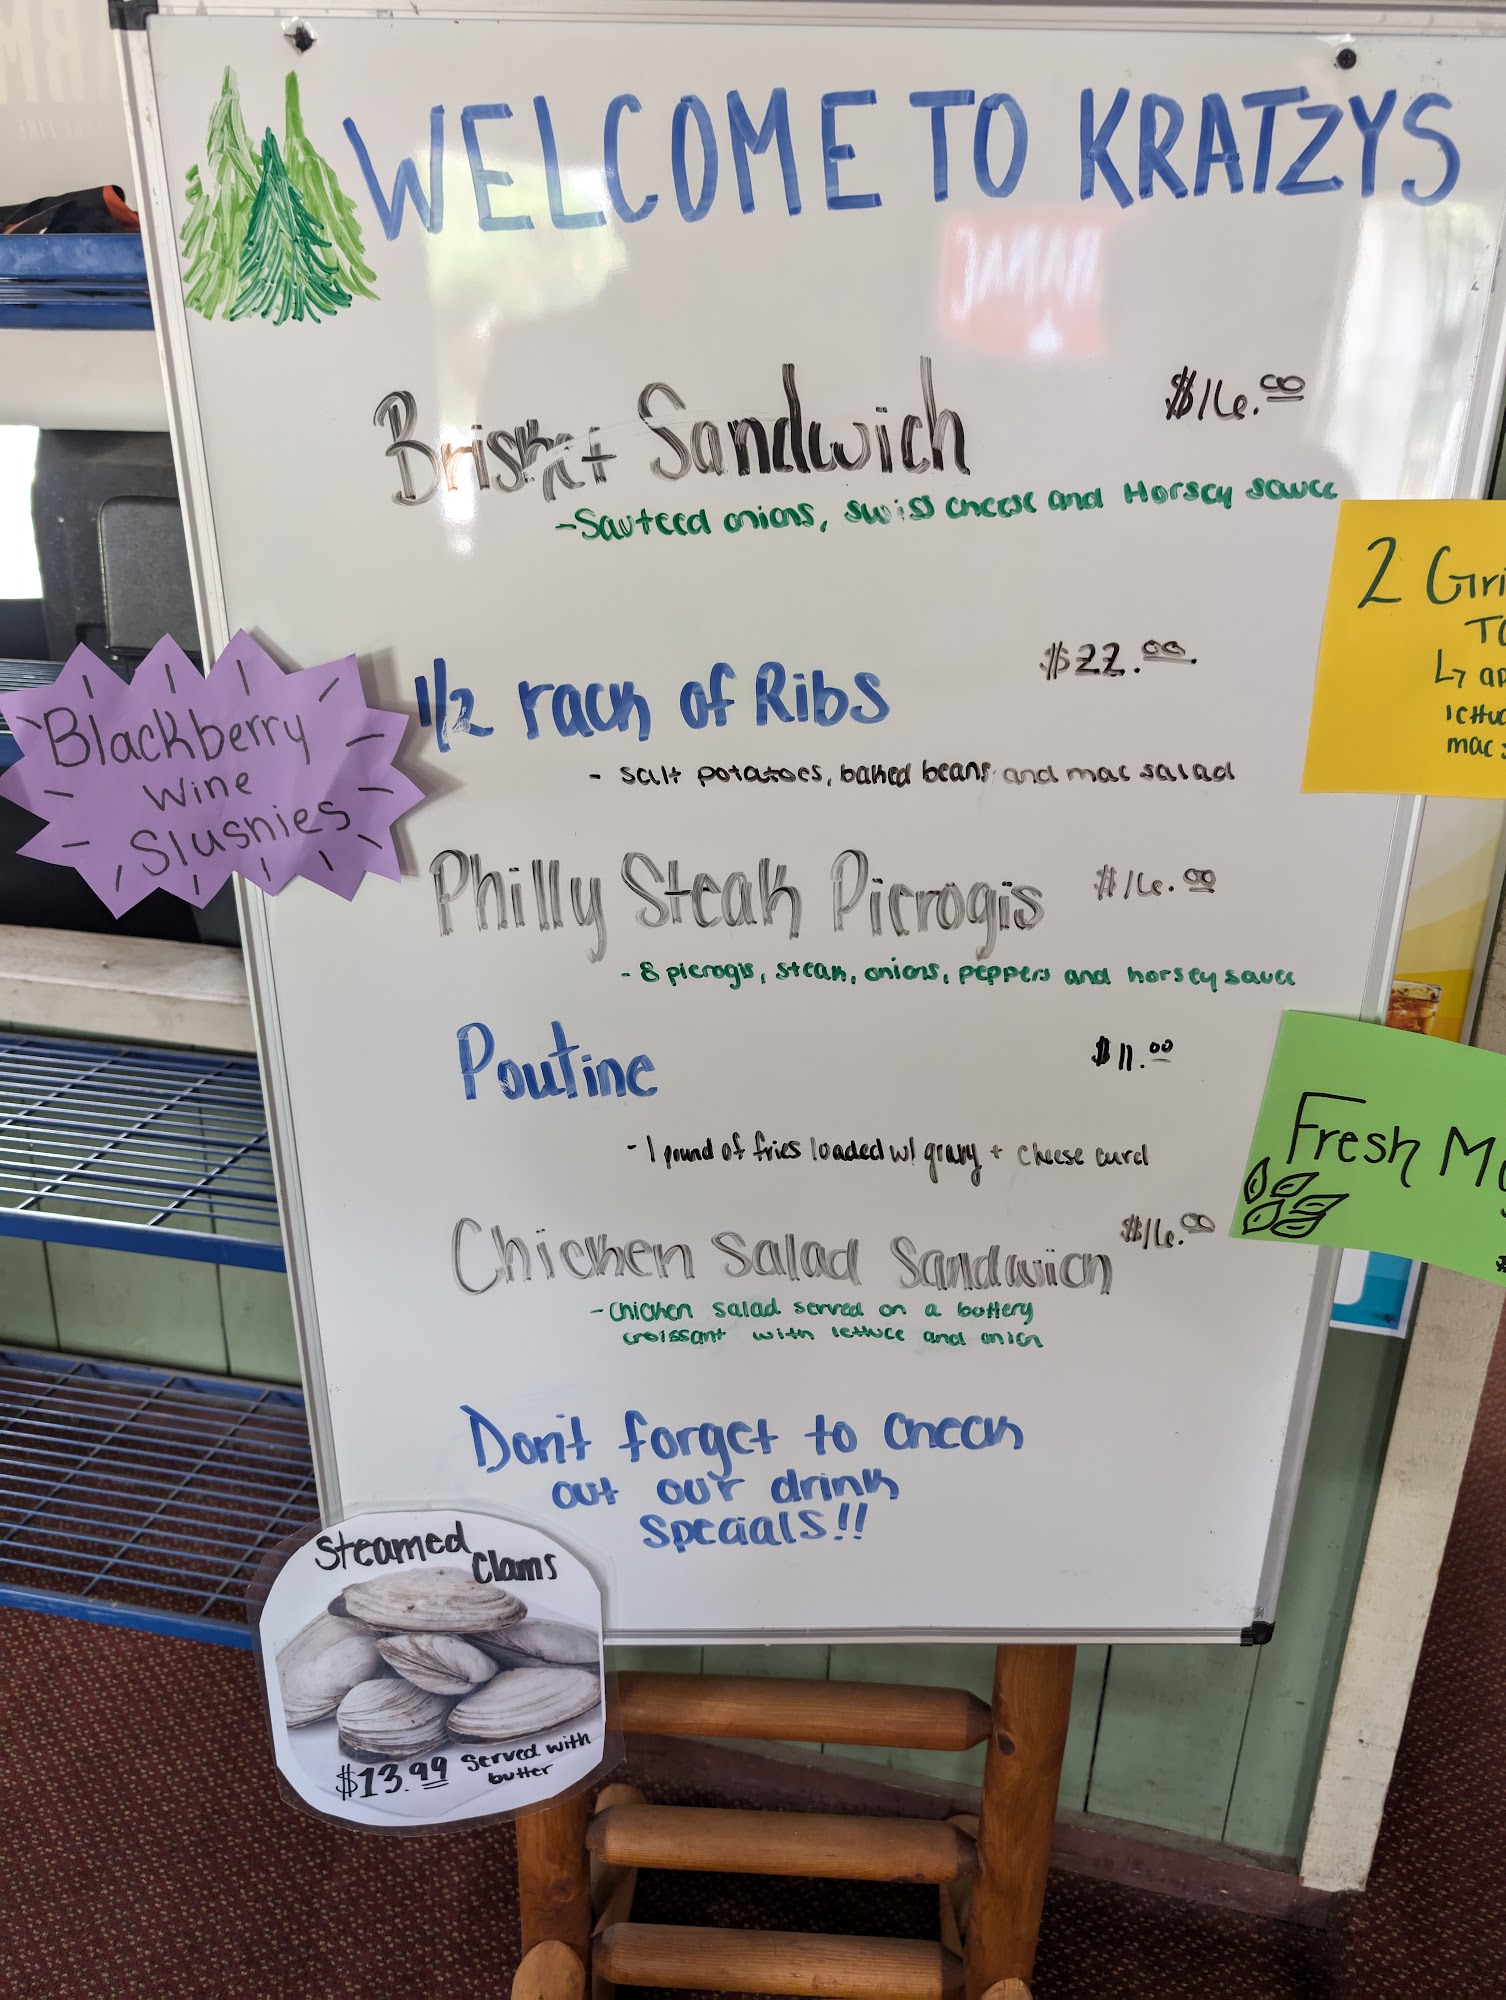 WELCOME TO KRATZYS
Brisket Sandwich $16.00
-Sauteed onions, swiss cheese and Horsey sauce
1/2 rack of Ribs $22.00
- salt potatoes, baked beans and mac salad
Blackberry
Wine
Slushies
Philly Steak Pierogis $16.00
- 8 pierogis, steak, onions, peppers and horsey sauce
Poutine $11.00
- 1 pound of fries loaded w/ gravy + cheese curd
Chicken Salad Sandwich $16.00
- Chicken salad served on a buttery
croissant with lettuce and onion
Don't forget to check
out our drink
specials!!
Steamed
Clams
$13.99 Served with
butter
2 Gri
TO
↳ ap
lettuc
mac s
Fresh Mo
$